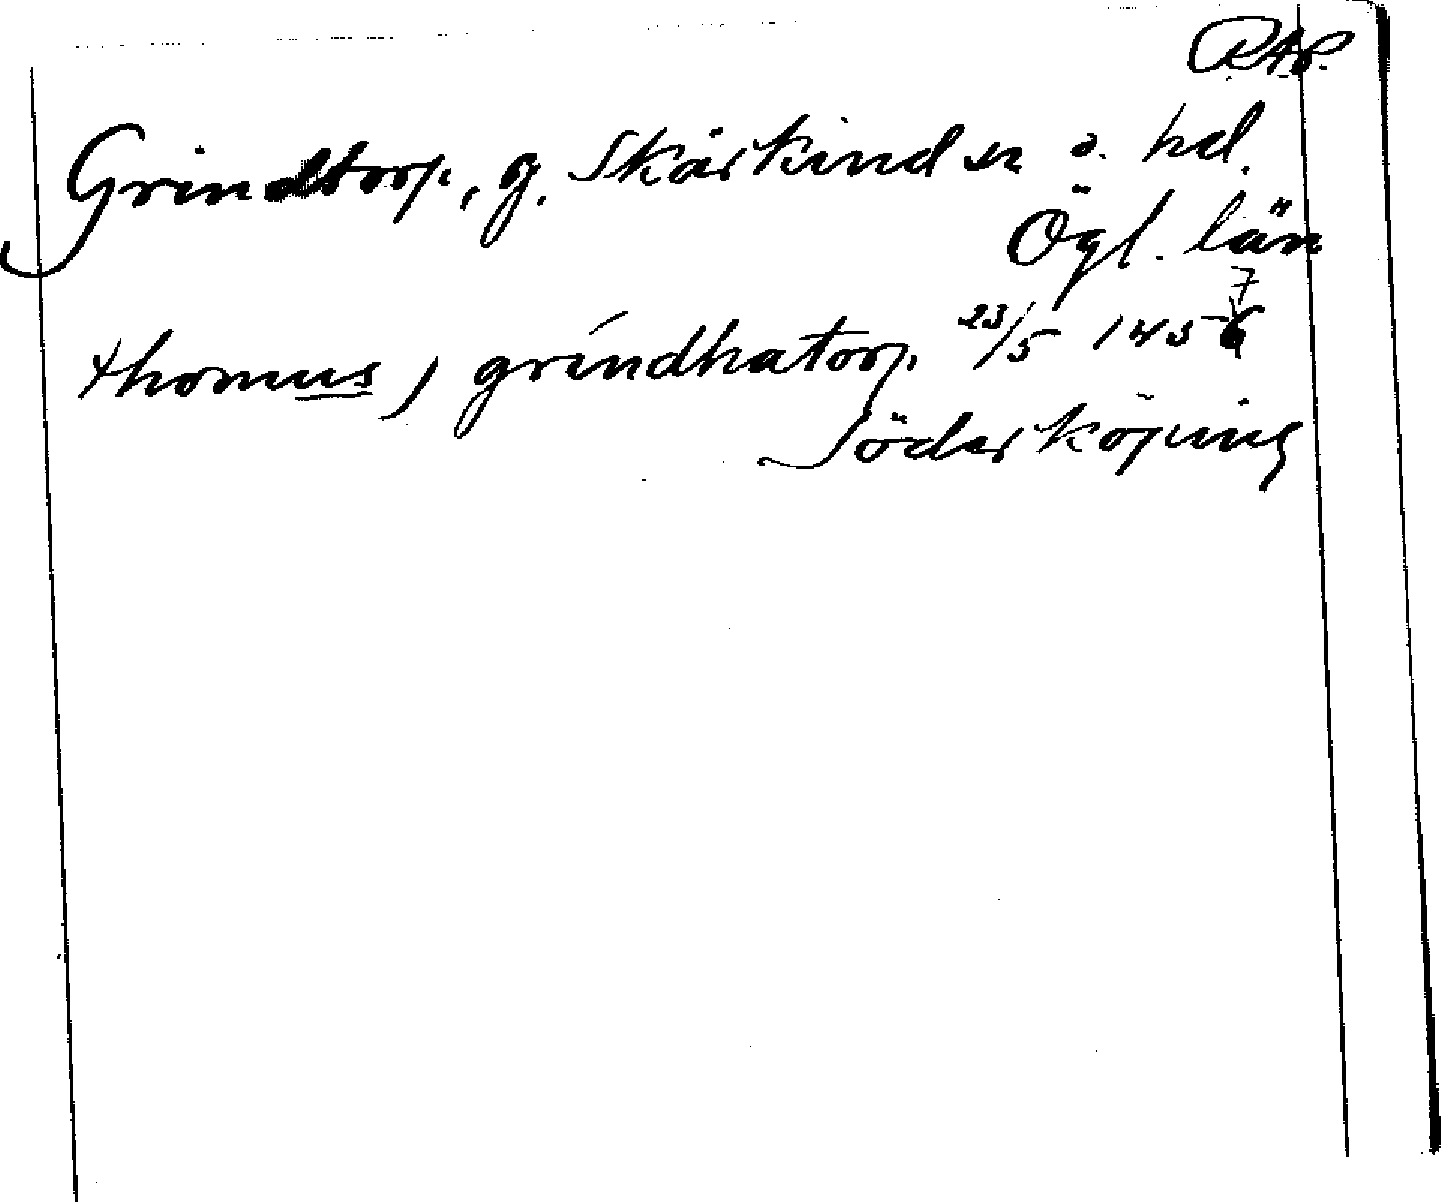 RAP.
Grindtorp, g. Skärkind sn o. hd.
Ögl. län
thomus j grindhatorp 23/5 1457
Söderköping